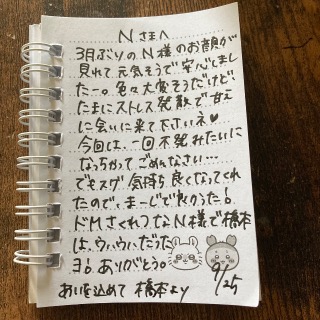 Nさまへ
3月ぶりのN様のお顔が
見れて元気そうで安心しまし
たー。色々大変そうだけど
たまにストレス発散で甘え
に会いに来て下さいネ♥
今回は、一回不発みたいに
なっちゃってごめんなさい…
でもスグ気持ち良くなってくれ
たので、まーじでれうた!
ドMさくれつなN様で橋本
は、ウハウハだうた
ヨ!ありがとう。
あいを込めて 橋本より
9/25